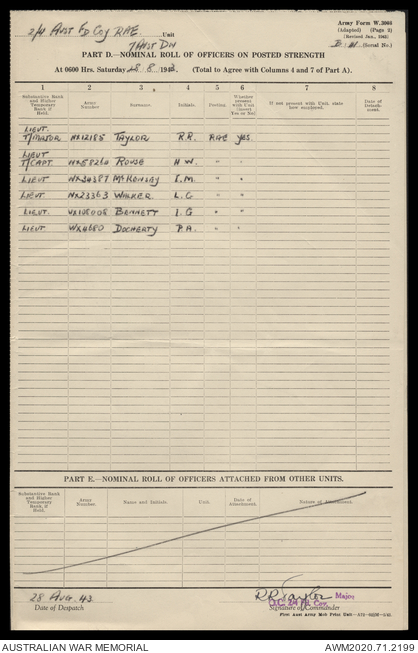 2/4 Aust Fd Coy RAE Unit
7 Aust Div
Army Form W.3008
(Adapted) (Page 2)
(Revised Jan., 1943)
(Serial No.)
PART D.—NOMINAL ROLL OF OFFICERS ON POSTED STRENGTH
At 0600 Hrs. Saturday 28.8.1943. (Total to Agree with Columns 4 and 7 of Part A).
1 2 3 4 5 6 7 8
Substantive Rank and Higher Temporary Rank if Held. Army Number. Surname. Initials. Posting. Whether present with Unit (insert Yes or No) If not present with Unit, state how employed. Date of Detachment.
LIEUT.
T/MAJOR NX12185 TAYLOR R.R. RAE yes.
LIEUT
T/CAPT. ROUSE H W. " "
LIEUT NX34387 McKENSEY I.M. " "
LIEUT. NX23363 WALKER L.G " "
LIEUT. BENNETT I.G " "
LIEUT WX4680 DOCHERTY P.A. " "
PART E.—NOMINAL ROLL OF OFFICERS ATTACHED FROM OTHER UNITS.
Substantive Rank and Higher Temporary Rank if Held. Army Number. Name and Initials. Unit. Date of Attachment. Nature of Attachment.
28 AUG 43
Date of Despatch
RR Taylor Major
O.C. 2/4 Fd. Coy.
Signature of Commander
First Aust Army Mob Print Unit
AUSTRALIAN WAR MEMORIAL AWM2020.71.2199